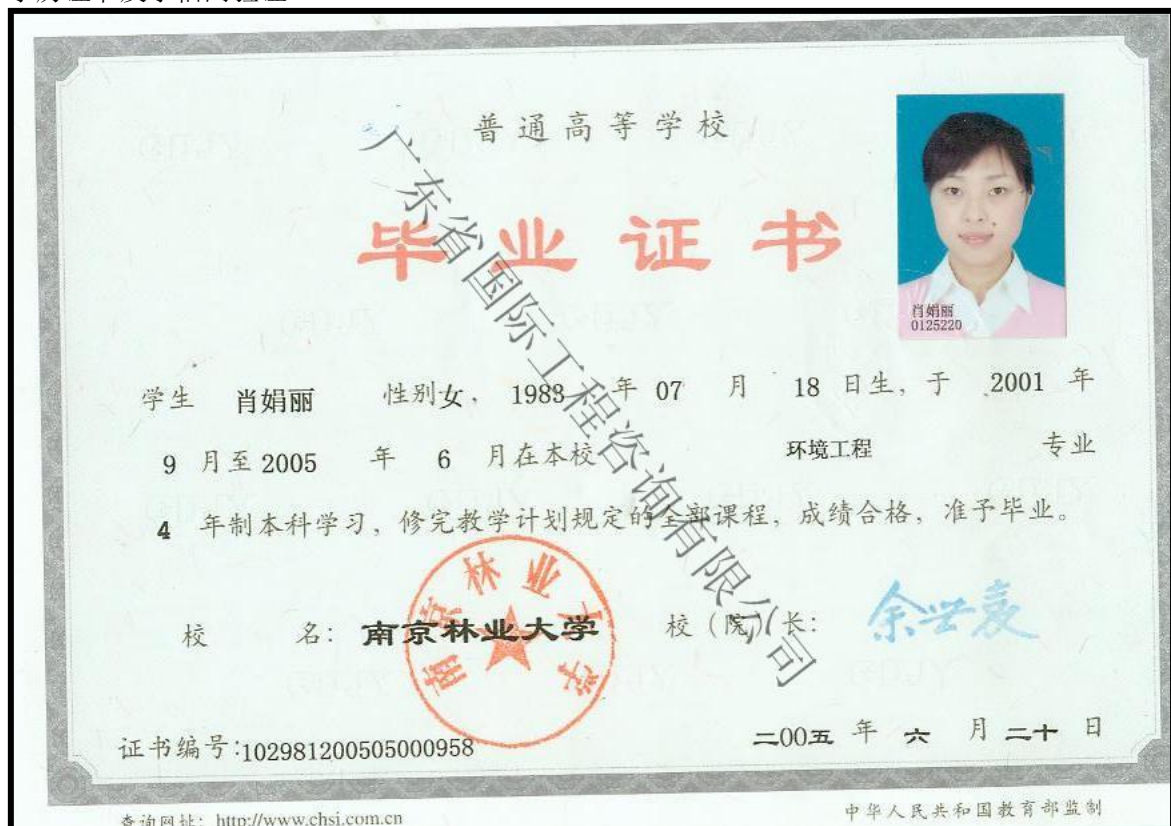 普通高等学校
毕业证书
肖娟丽
0125220
学生 肖娟丽 性别女，1983 年 07 月 18 日生，于 2001 年
9 月至 2005 年 6 月在本校 环境工程 专业
4 年制本科学习，修完教学计划规定的全部课程，成绩合格，准予毕业。
校 名：南京林业大学 校（院）长：
南京林业大学
证书编号：102981200505000958 二00五 年 六 月 二十 日
查询网址：http://www.chsi.com.cn 中华人民共和国教育部监制
广东省国际工程咨询有限公司